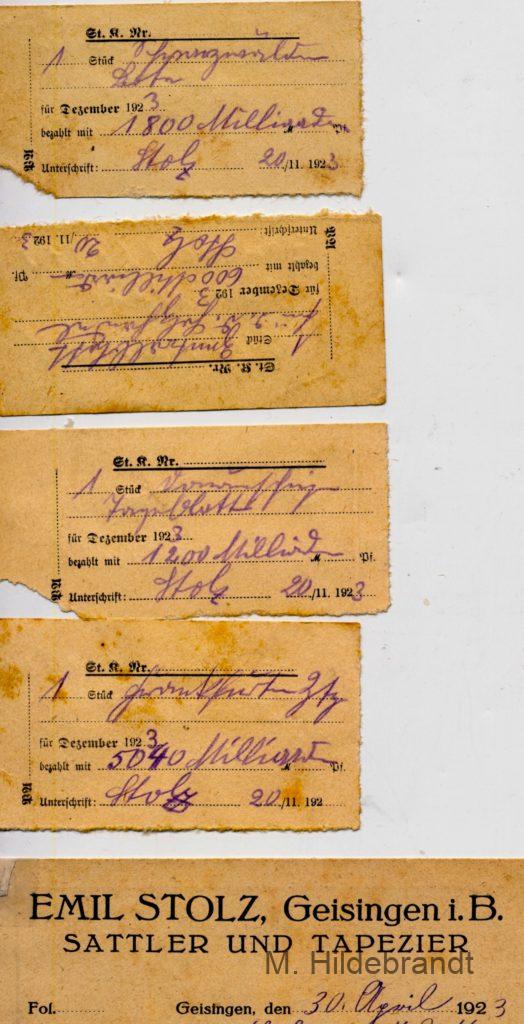 St. K. Nr.
1 Stück Schwarzwälder
Bote
für Dezember 1923.
bezahlt mit 1800 Milliarden M Pf.
Unterschrift: Stolz 20./11. 1923
St. K. Nr.
1 Stück Zentralblatt
für d. d. Holzhandel
für Dezember 1923
bezahlt mit 600 Milliarden M Pf.
Unterschrift: Stolz 20./11. 1923
St. K. Nr.
1 Stück Donaueschinger
Tageblatt
für Dezember 1923.
bezahlt mit 1200 Milliarden M Pf.
Unterschrift: Stolz 20./11. 1923
St. K. Nr.
1 Stück Frankfurter Ztg
für Dezember 1923.
bezahlt mit 5040 Milliarden M Pf.
Unterschrift: Stolz 20./11. 192
EMIL STOLZ, Geisingen i. B.
SATTLER UND TAPEZIER
M. Hildebrandt
Fol. Geisingen, den 30. April 1923